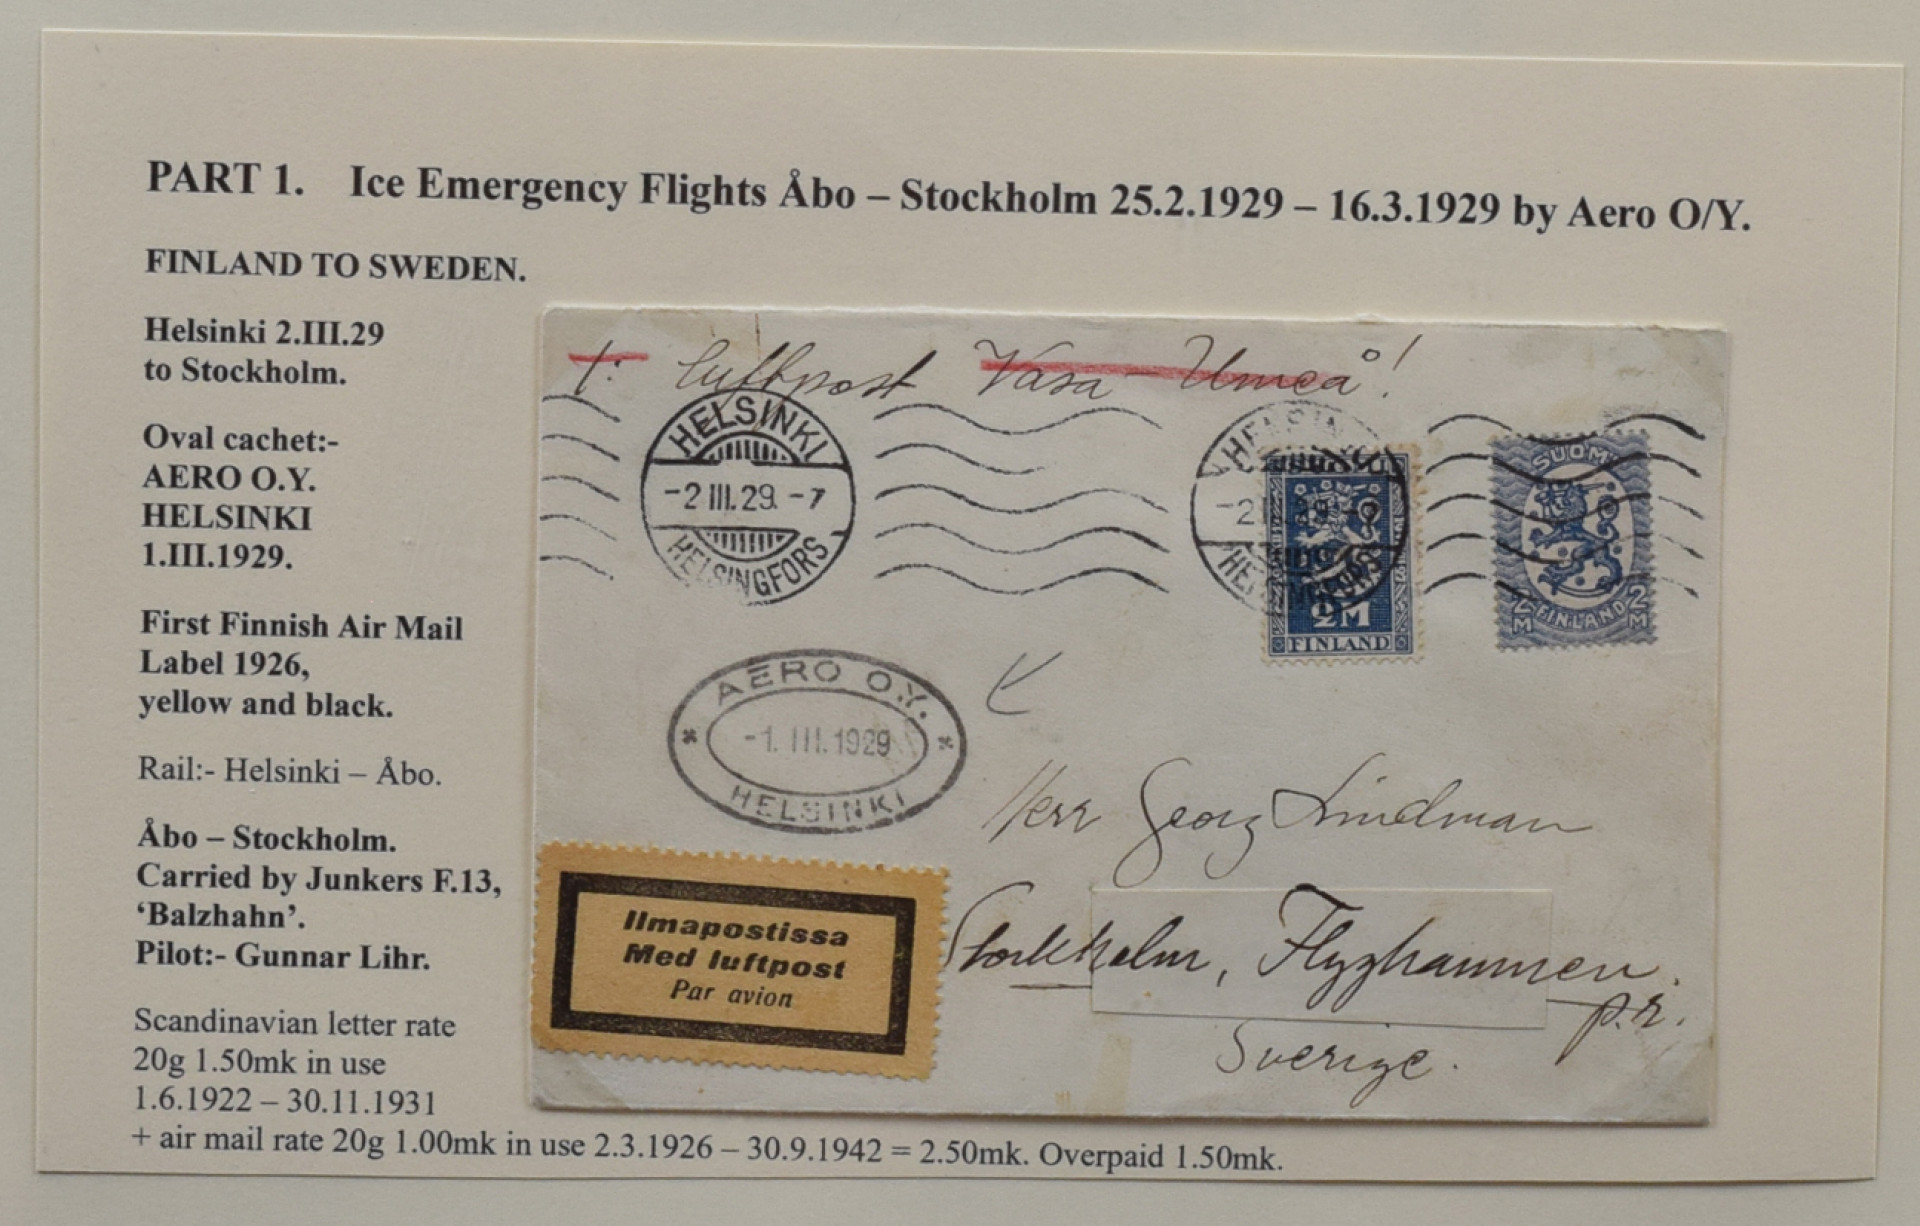 PART 1. Ice Emergency Flights Åbo – Stockholm 25.2.1929 – 16.3.1929 by Aero O/Y.
FINLAND TO SWEDEN.
Helsinki 2.III.29
to Stockholm.
Oval cachet:-
AERO O.Y.
HELSINKI
1.III.1929.
First Finnish Air Mail
Label 1926,
yellow and black.
Rail:- Helsinki – Åbo.
Åbo – Stockholm.
Carried by Junkers F.13,
‘Balzhahn’.
Pilot:- Gunnar Lihr.
Scandinavian letter rate
20g 1.50mk in use
1.6.1922 – 30.11.1931
+ air mail rate 20g 1.00mk in use 2.3.1926 – 30.9.1942 = 2.50mk. Overpaid 1.50mk.
luftpost Vasa – Umeå!
HELSINKI
-2 III.29. -7
HELSINGFORS
HELSINKI
HELSINGFORS
2 M
FINLAND
SUOMI
2 M FINLAND 2 M
AERO O.Y.
-1. III. 1929
HELSINKI
Herr Georg Lindman
Stockholm, Flyghamnen
p.r.
Sverige.
Ilmapostissa
Med luftpost
Par avion